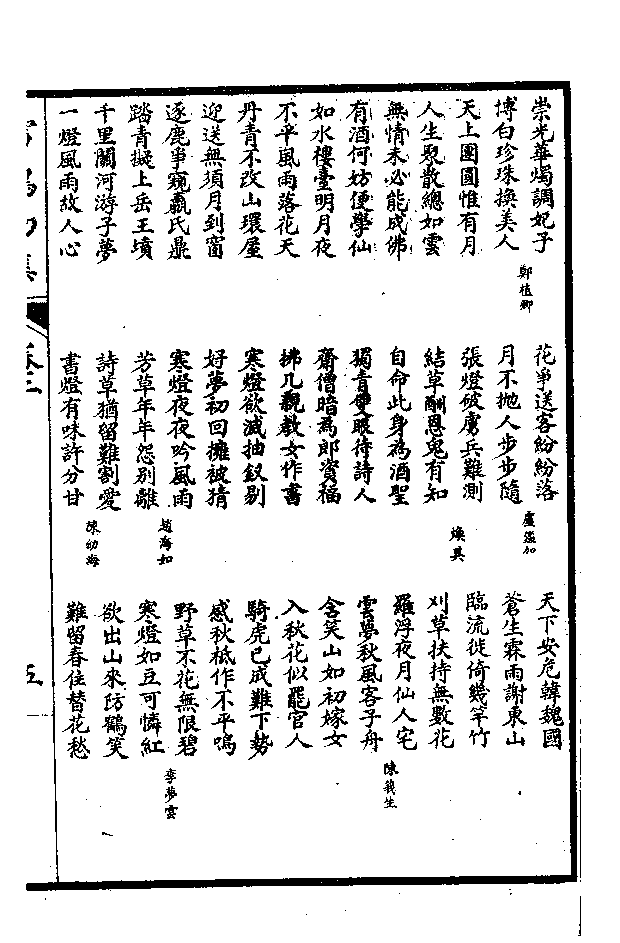 崇光華燭調妃子
博白珍珠換美人
鄭植卿
天上團圓惟有月
人生聚散總如雲
無情未必能成佛
有酒何妨便學仙
如水樓臺明月夜
不平風雨落花天
丹青不改山環屋
迎送無須月到窗
逐鹿爭窺嬴氏鼎
踏青擬上岳王墳
千里關河游子夢
一燈風雨故人心
花爭送客紛紛落
月不拋人步步隨
張燈破虜兵難測
結草酬恩鬼有知
煥其
自命此身為酒聖
獨青雙眼待詩人
齋僧暗為郎資福
拂几親教女作書
寒燈欲滅抽釵剔
好夢初回擁被猜
寒燈夜夜吟風雨
芳草年年怨別離
趙海如
詩草猶留難割愛
書燈有味許分甘
陳幼海
天下安危韓魏國
蒼生霖雨謝東山
臨流徙倚幾竿竹
刈草扶持無數花
羅浮夜月仙人宅
雲夢秋風客子舟
陳我生
含笑山如初嫁女
入秋花似罷官人
騎虎已成難下勢
感秋祗作不平鳴
野草不花無限碧
寒燈如豆可憐紅
李夢雲
欲出山來防鶴笑
難留春住替花愁
五